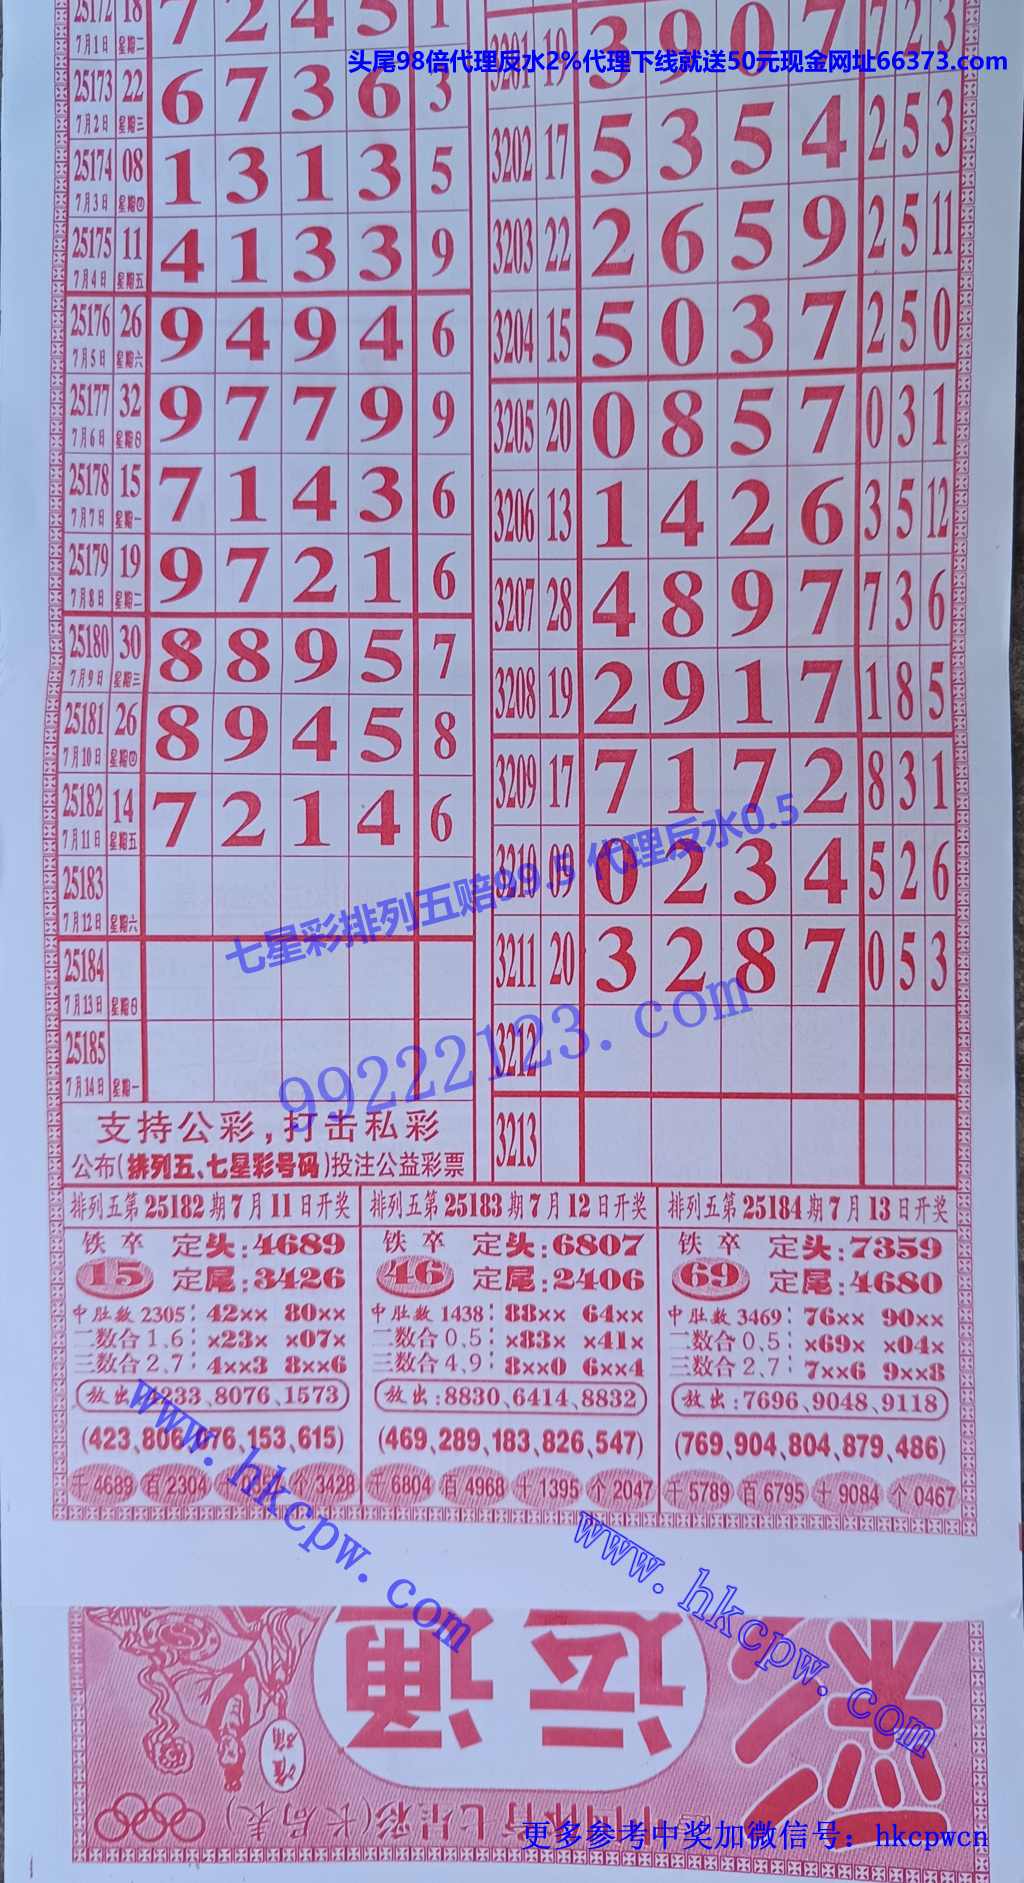 25172 18 7 2 4 5 1
7月1日 星期二
头尾98倍代理反水2%代理下线就送50元现金网址66373.com
25173 22 6 7 3 6 3
7月2日 星期三
25174 08 1 3 1 3 5
7月3日 星期四
25175 11 4 1 3 3 9
7月4日 星期五
25176 26 9 4 9 4 6
7月5日 星期六
25177 32 9 7 7 9 9
7月6日 星期日
25178 15 7 1 4 3 6
7月7日 星期一
25179 19 9 7 2 1 6
7月8日 星期二
25180 30 8 8 9 5 7
7月9日 星期三
25181 26 8 9 4 5 8
7月10日 星期四
25182 14 7 2 1 4 6
7月11日 星期五
25183
7月12日 星期六
25184
7月13日 星期日
25185
7月14日 星期一
支持公彩,打击私彩
公布(排列五、七星彩号码)投注公益彩票
3201 19 3 9 0 7 7 2 3
3202 17 5 3 5 4 2 5 3
3203 22 2 6 5 9 2 5 11
3204 15 5 0 3 7 2 5 0
3205 20 0 8 5 7 0 3 1
3206 13 1 4 2 6 3 5 12
3207 28 4 8 9 7 7 3 6
3208 19 2 9 1 7 1 8 5
3209 17 7 1 7 2 8 3 1
3210 09 0 2 3 4 5 2 6
3211 20 3 2 8 7 0 5 3
3212
3213
七星彩排列五赔99.5 代理反水0.5
99222123.com
排列五第25182期7月11日开奖
铁卒 定头:4689
15 定尾:3426
中肚数2305: 42×× 80××
二数合1.6: ×23× ×07×
三数合2.7: 4××3 8××6
放出:4233、8076、1573
(423、806、076、153、615)
千4689 百2304 个3428
排列五第25183期7月12日开奖
铁卒 定头:6807
46 定尾:2406
中肚数1438: 88×× 64××
二数合0.5: ×83× ×41×
三数合4.9: 8××0 6××4
放出:8830、6414、8832
(469、289、183、826、547)
千6804 百4968 十1395 个2047
排列五第25184期7月13日开奖
铁卒 定头:7359
69 定尾:4680
中肚数3469: 76×× 90××
二数合0.5: ×69× ×04×
三数合2.7: 7××6 9××8
放出:7696、9048、9118
(769、904、804、879、486)
千5789 百6795 十9084 个0467
www.hkcpw.com
www.hkcpw.com
彩运通
中国体育七星彩(长局表)
更多参考中奖加微信号：hkcpwcn